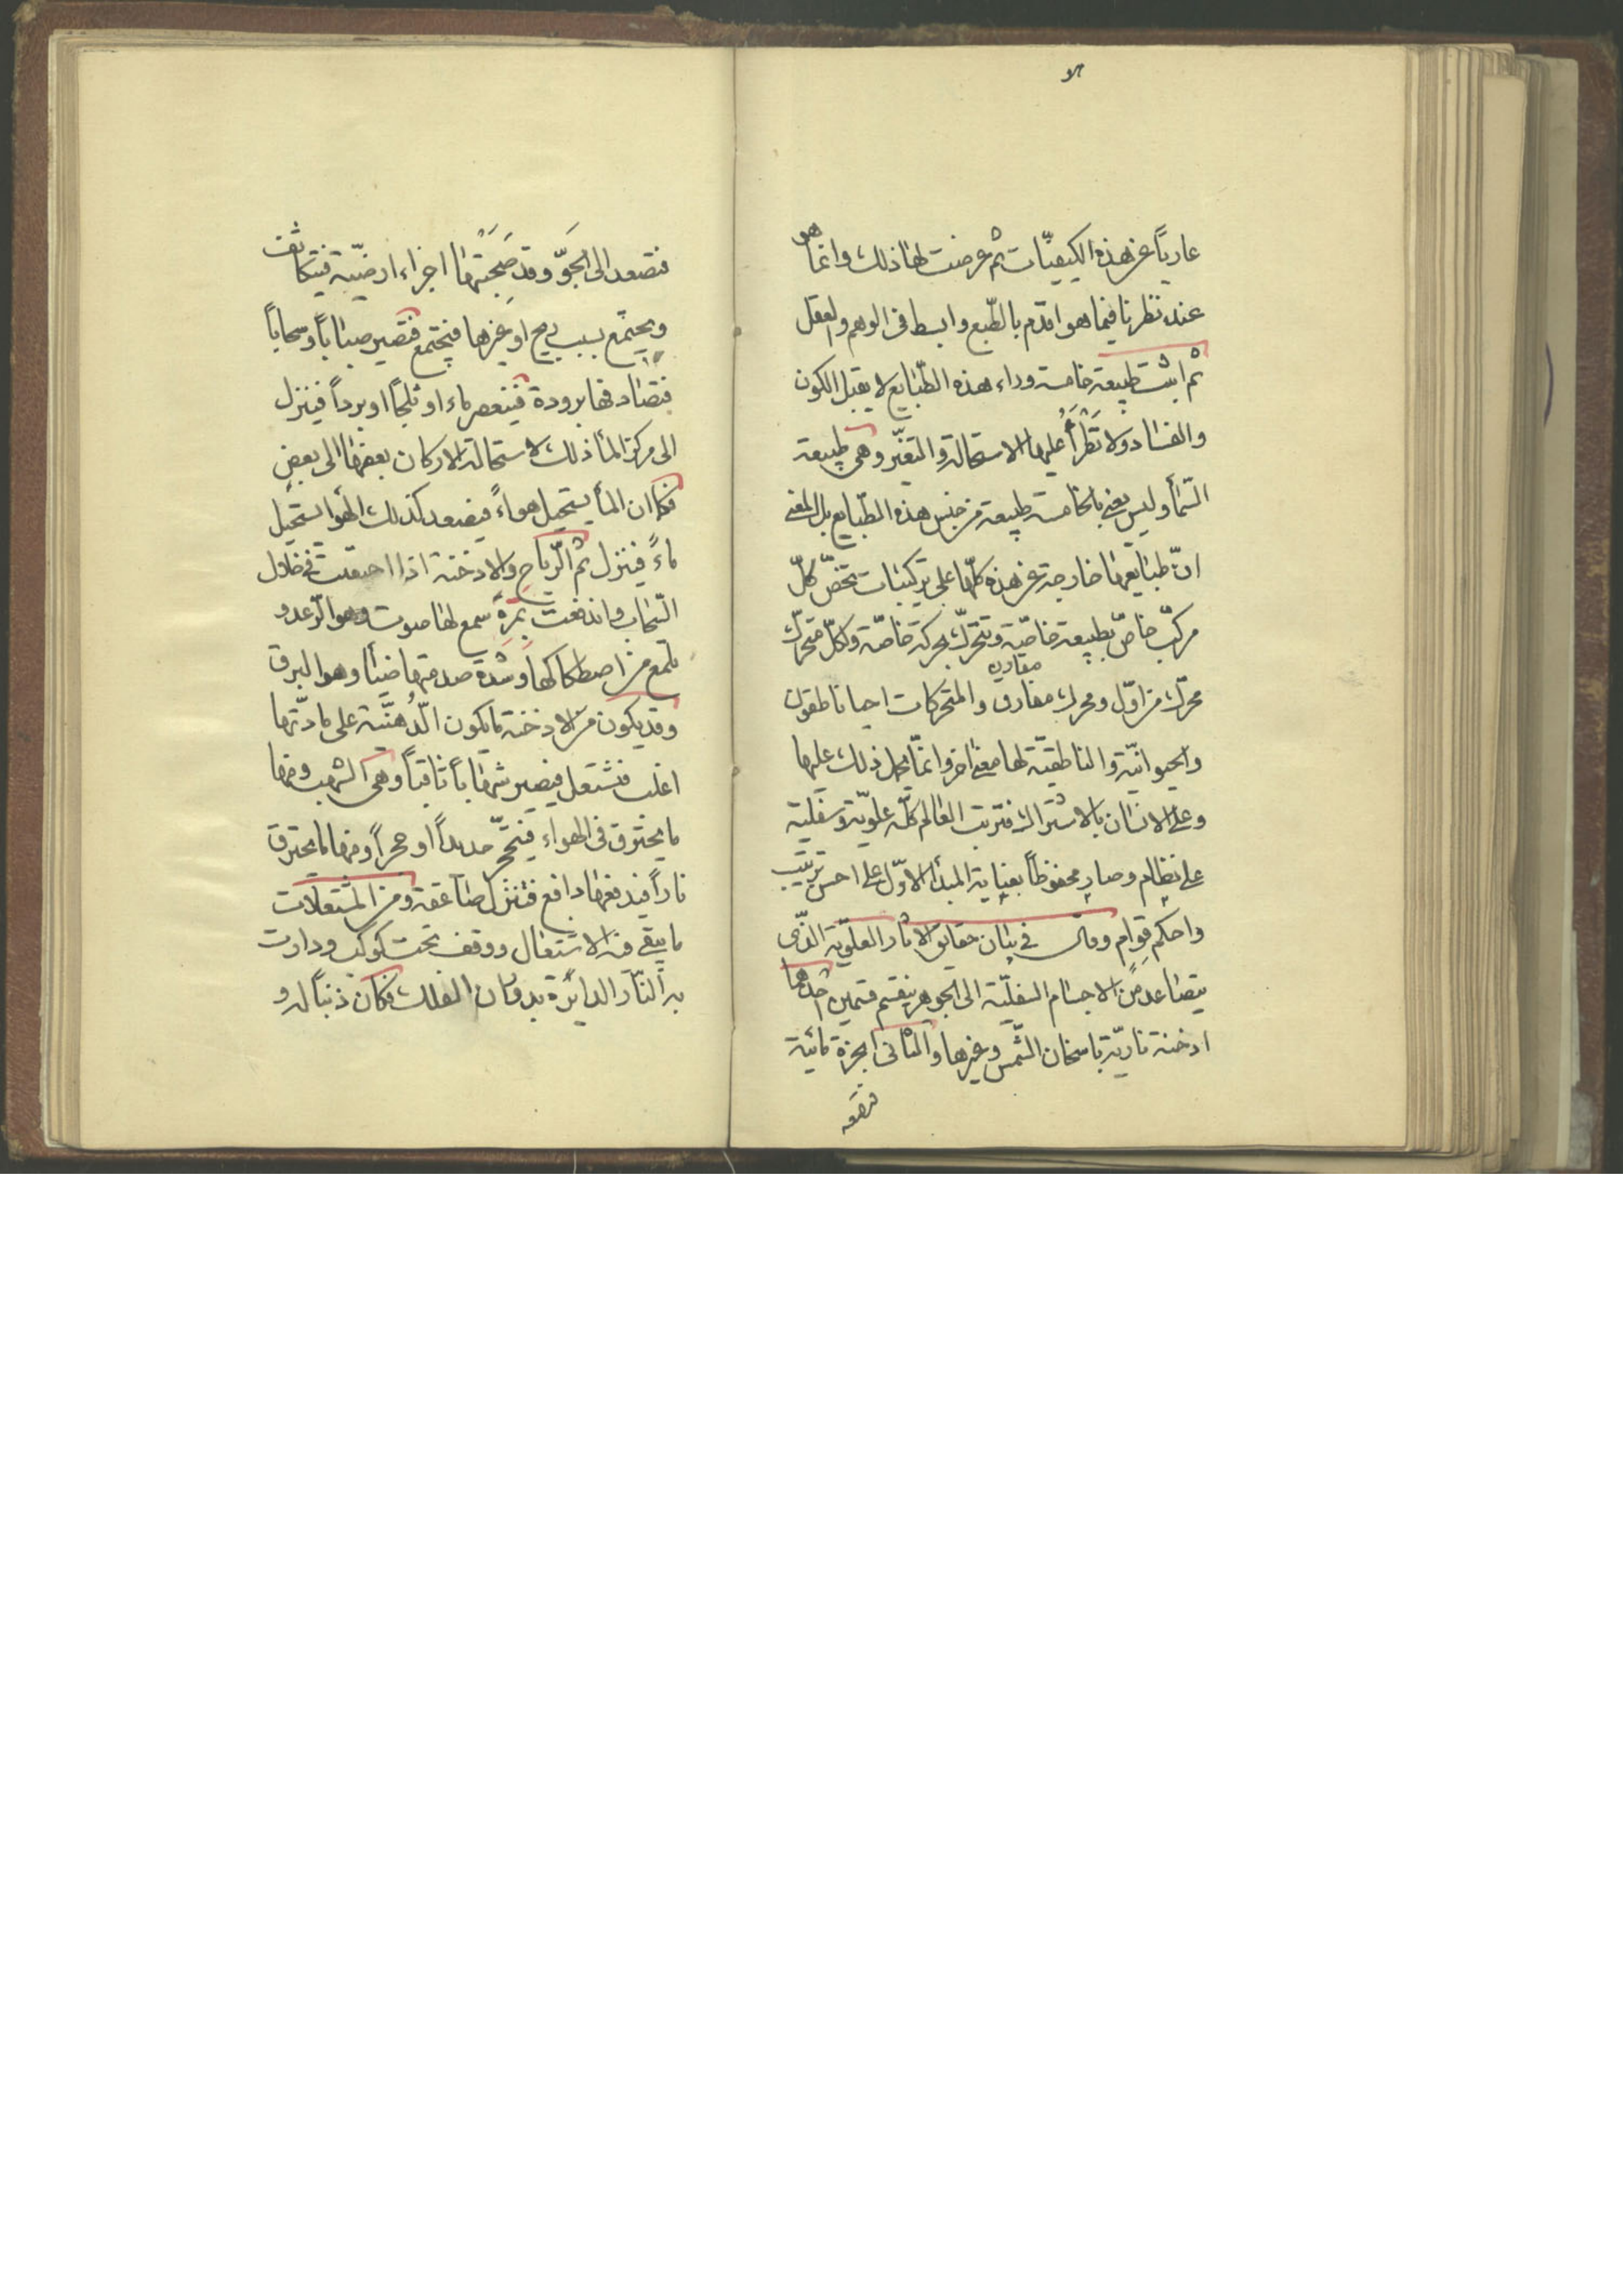 عارياً عن هذه الكيفيّات ثم عرضت لها ذلك وانما هو
عند نظرنا فيما هو اقدم بالطّبع وابسط فى الوهم والعقل
ثم اثبت طبيعة خامسة وراء هذه الطّبايع لا يقبل الكون
والفساد ولا تَطْرَأُ عليها الاستحالة والتغيّر وهى طبيعة
السّمأ وليس يعنى بالخامسة طبيعة من جنس هذه الطّبايع بل المعنى
انّ طبايعها خارجة عن هذه كلّها على تركيبات تخصّ كلّ
مركّب خاصّ بطبيعة خاصّية وتتحرّك بحركة خاصّة ولكلّ متحرّك
محرّك من اوّل ومحرك مفارق والمتحركات احيا ناطقون
مفارق
والحيوانيّة والناطقيّة لها معنى اخر وانمّا يحمل ذلك عليها
وعلى الانسان بالاشتراك فترتب العالم كلّه علويّة وسفليّة
على نظام وصار محفوظاً بعناية المبدأ الاوّل على احسن ترتيب
واحكم قوام وقال فى بيان حقايق الاثار العلويّة الذّى
يتصاعد من الاجسام السفليّة الى الجو هو ينقسم قسمين احدهما
ادخنة ناريّة باسخان الشّمس وغيرها والثانى ابخرة مائية
فتصعد
فتصعد الى الجَوّ وقد صَحَبَتْها اجزاء ارضيّة فيتكاثف
ويجتمع بسبب ريح او غيرها فيجتمع فتصير ضباباً وسحاباً
فتصادفها برودة فينعصر ماء او ثلجاً او برداً فينزل
الى مركز المأ ذلك لاستحالة الاركان بعضها الى بعض
فكما ان المأ يستحيل هواءً فيصعد كذلك الهوا يستحيل
ماءً فينزل ثم الرّياح والادخنة اذا احتقنت فى خلال
السّحاب واندفعت بمرة سمع لها صوت وهو الرّعد و
يلمع من اصطكاكها وشدة صدمتها ضيأ وهو البرق
وقد يكون من الادخنة ما يكون الدُّهنيّة على مادّتها
اغلب فتشتعل فيصير شهاباً ثاقباً وهى الشهب ومنها
ما يحترق فى الهواء فيتحجّر حديداً او حجراً ومنها ما يحترق
ناراً فيدفعها دافع فتنزل صاعقة ومن المشتعلات
ما يبقى فيه الاشتعال ووقف تحت كوكب ودارت
به النّار الدايرة بدوران الفلك فكان ذنباً له و